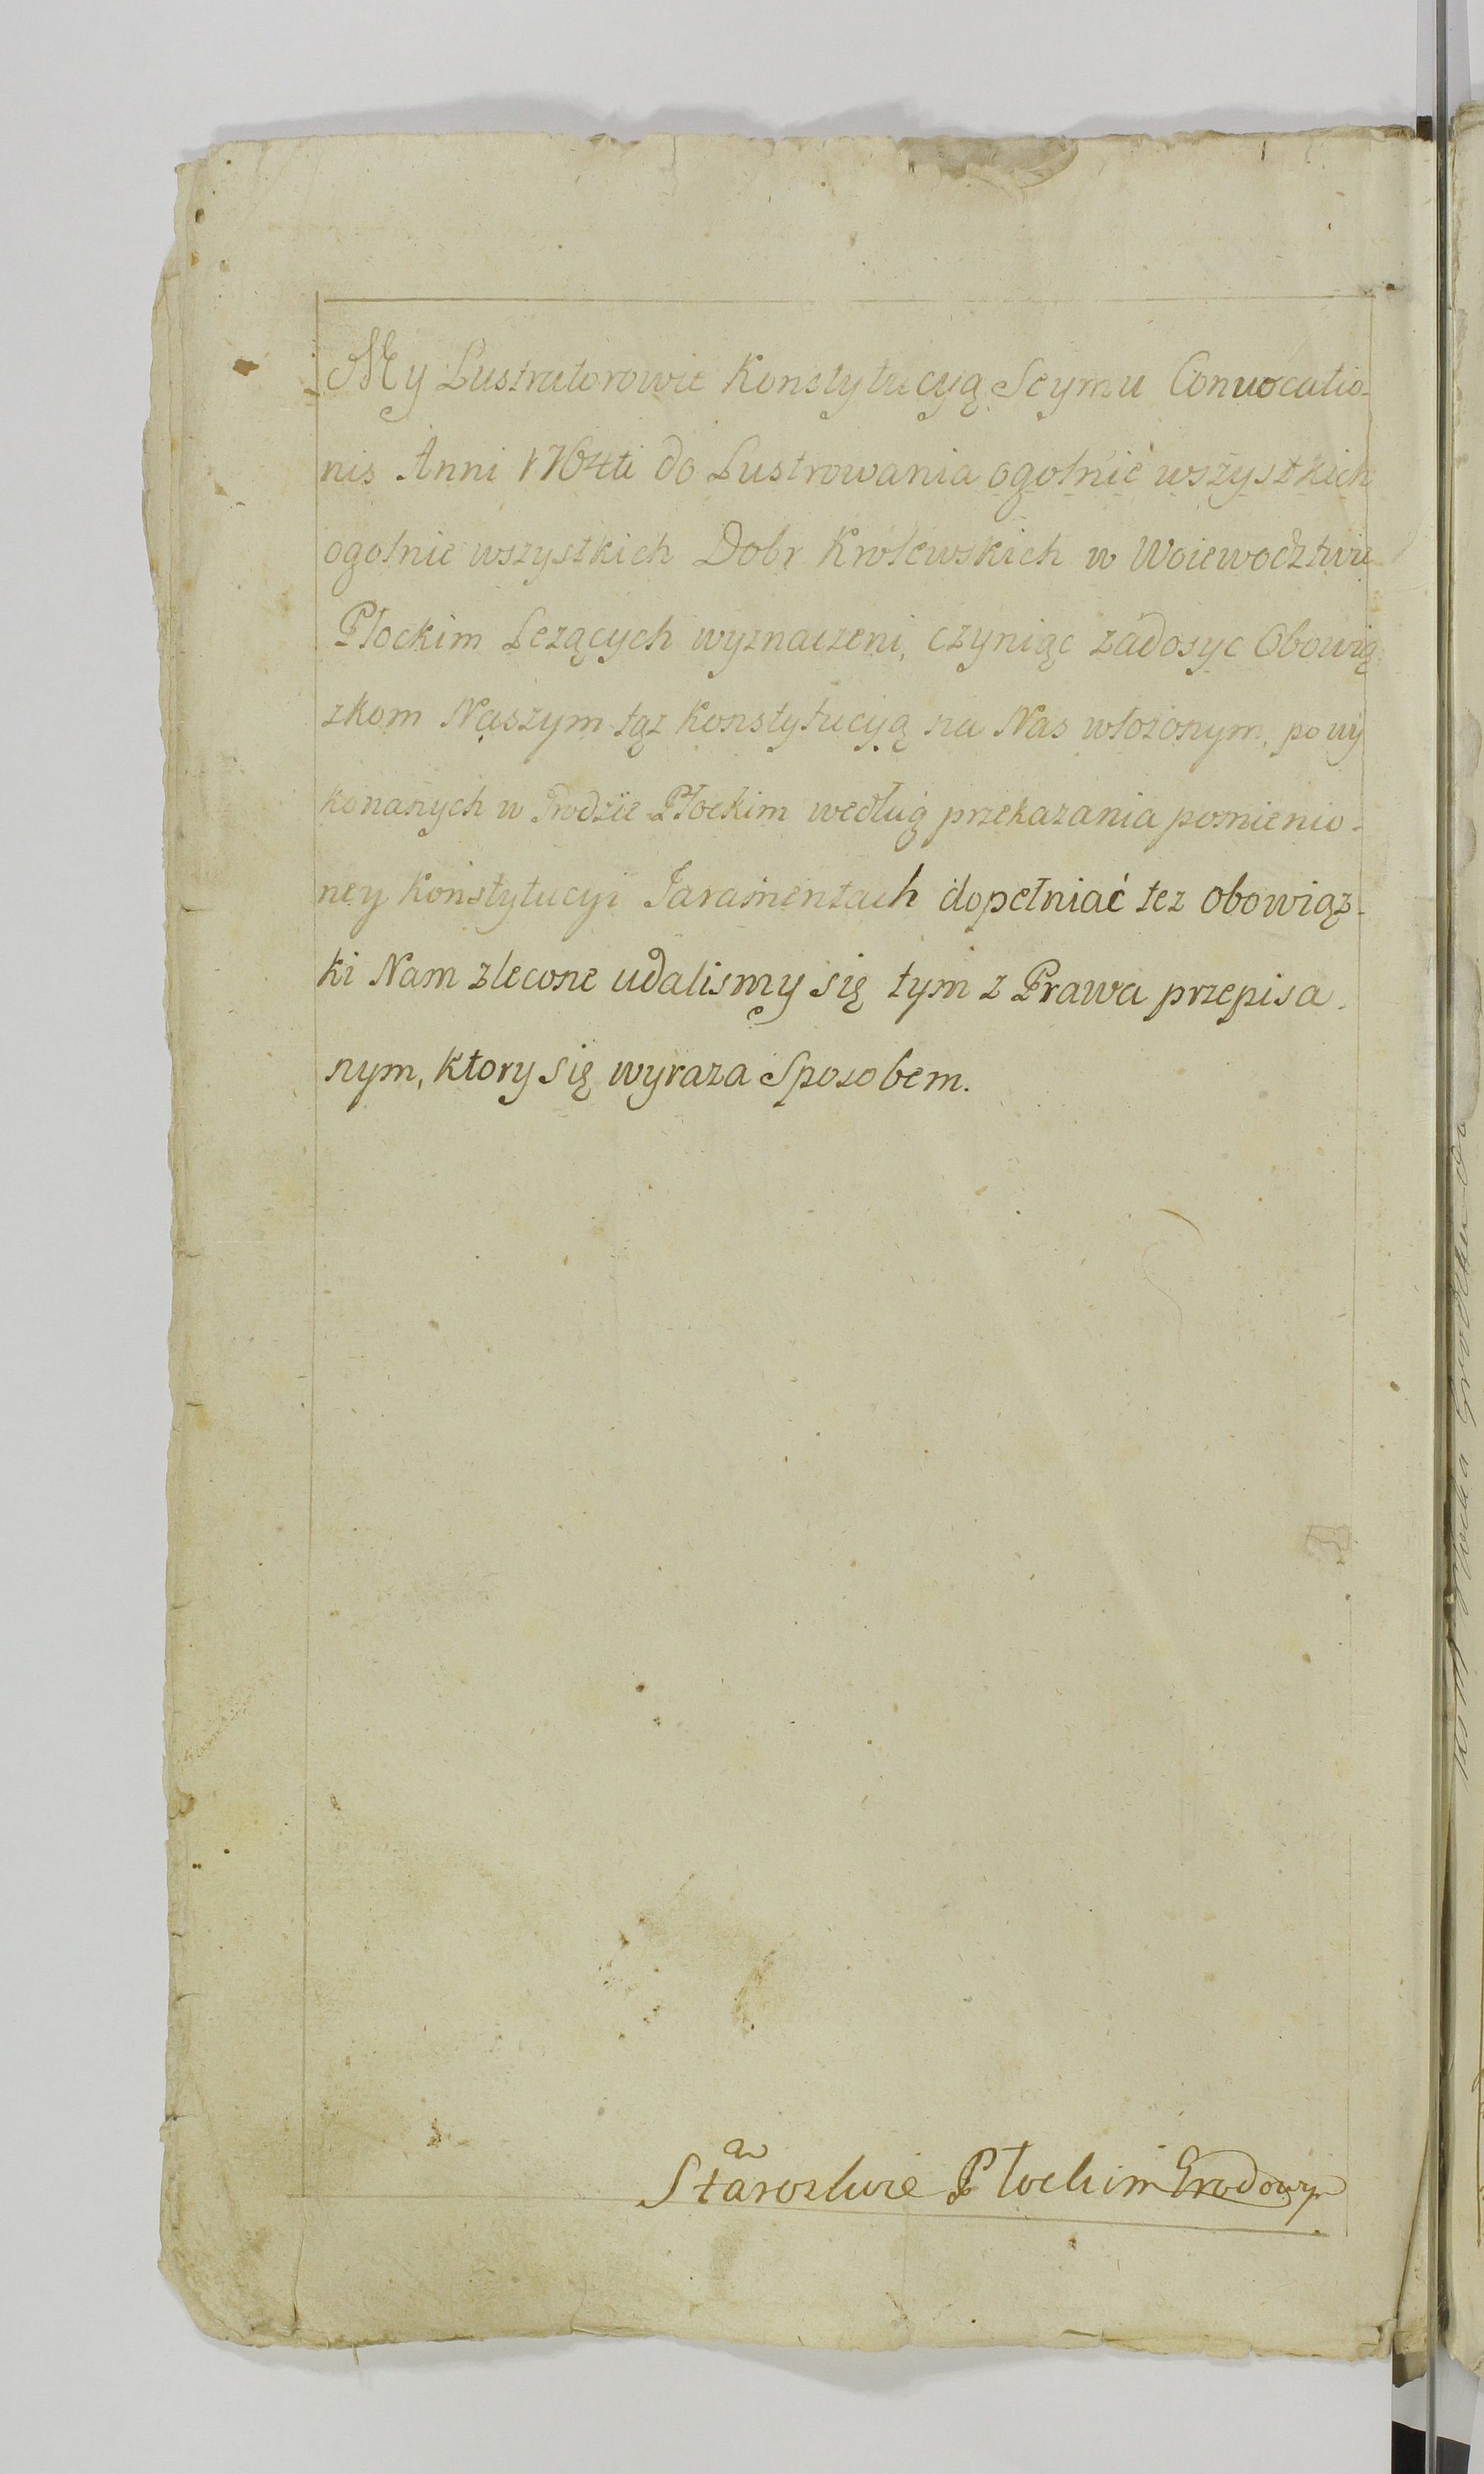 My Lustratorowie Konstytucyą Seymu Convocatio-
nis Anni 1764ti do Lustrowania ogolnie wszystkich
ogolnie wszystkich Dobr Krolewskich w Woiewodztwie
Płockim Lezących wyznaczeni, czyniąc zadosyc Obowią
zkom Naszym tąz Konstytucyą na Nas włozonym, po wy
konanych w Grodzie Płockim według przekazania pomienio-
ney Konstytucyi Juramentach dopełniać tez obowiąz-
ki Nam zlecone udalismy się tym z Prawa przepisa-
nym, ktory się wyraza Sposobem.
Starostwie Płockim Grodowym